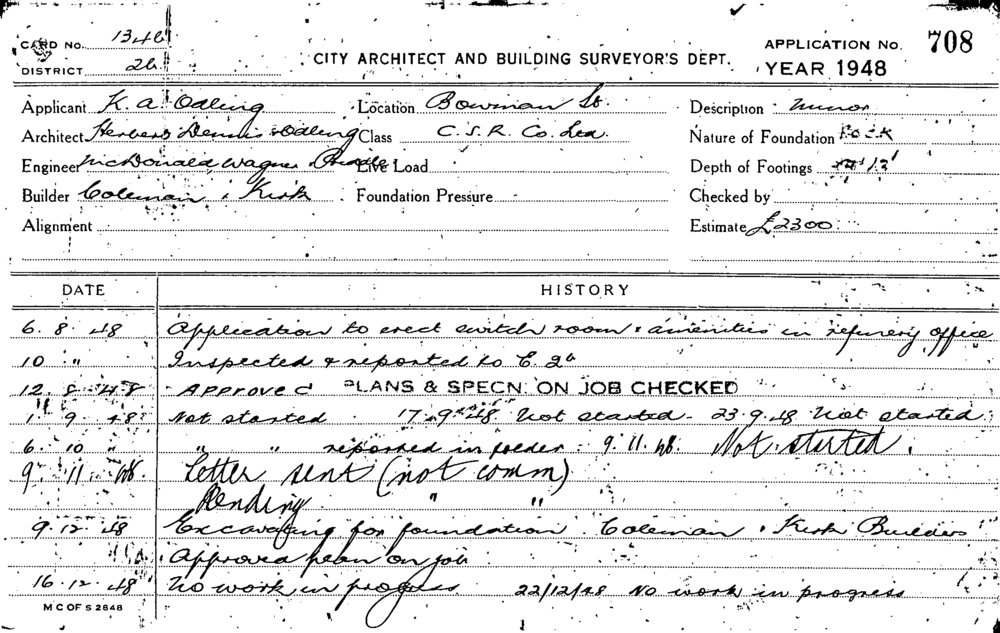 CARD No. 1348
DISTRICT 26
CITY ARCHITECT AND BUILDING SURVEYOR'S DEPT.
APPLICATION No. 708
YEAR 1948
Applicant K. A. Odling Location Bowman St. Description minor
Architect Herbert Dennis & Odling Class C. S. R. Co. Ltd. Nature of Foundation ROCK
Engineer McDonald, Wagner Priddle Live Load Depth of Footings 13'
Builder Coleman & Kirk Foundation Pressure Checked by
Alignment Estimate £2300
DATE HISTORY
6. 8. 48 Application to erect switch room & amenities in refinery office
10 " Inspected & reported to E.
12 8 48 Approved PLANS & SPECN. ON JOB CHECKED
1 9 48 Not started 17.9.48 Not started - 23.9.48 Not started
6. 10 " " " reported in folder 9. 11. 48. Not started.
9. 11. 48. Letter sent (not comm)
Pending " "
9.12.48 Excavating for foundation. Coleman & Kirk Builders
Approved plan on job
16.12.48 No work in progress 22/12/48 No work in progress
M C OF S 2848